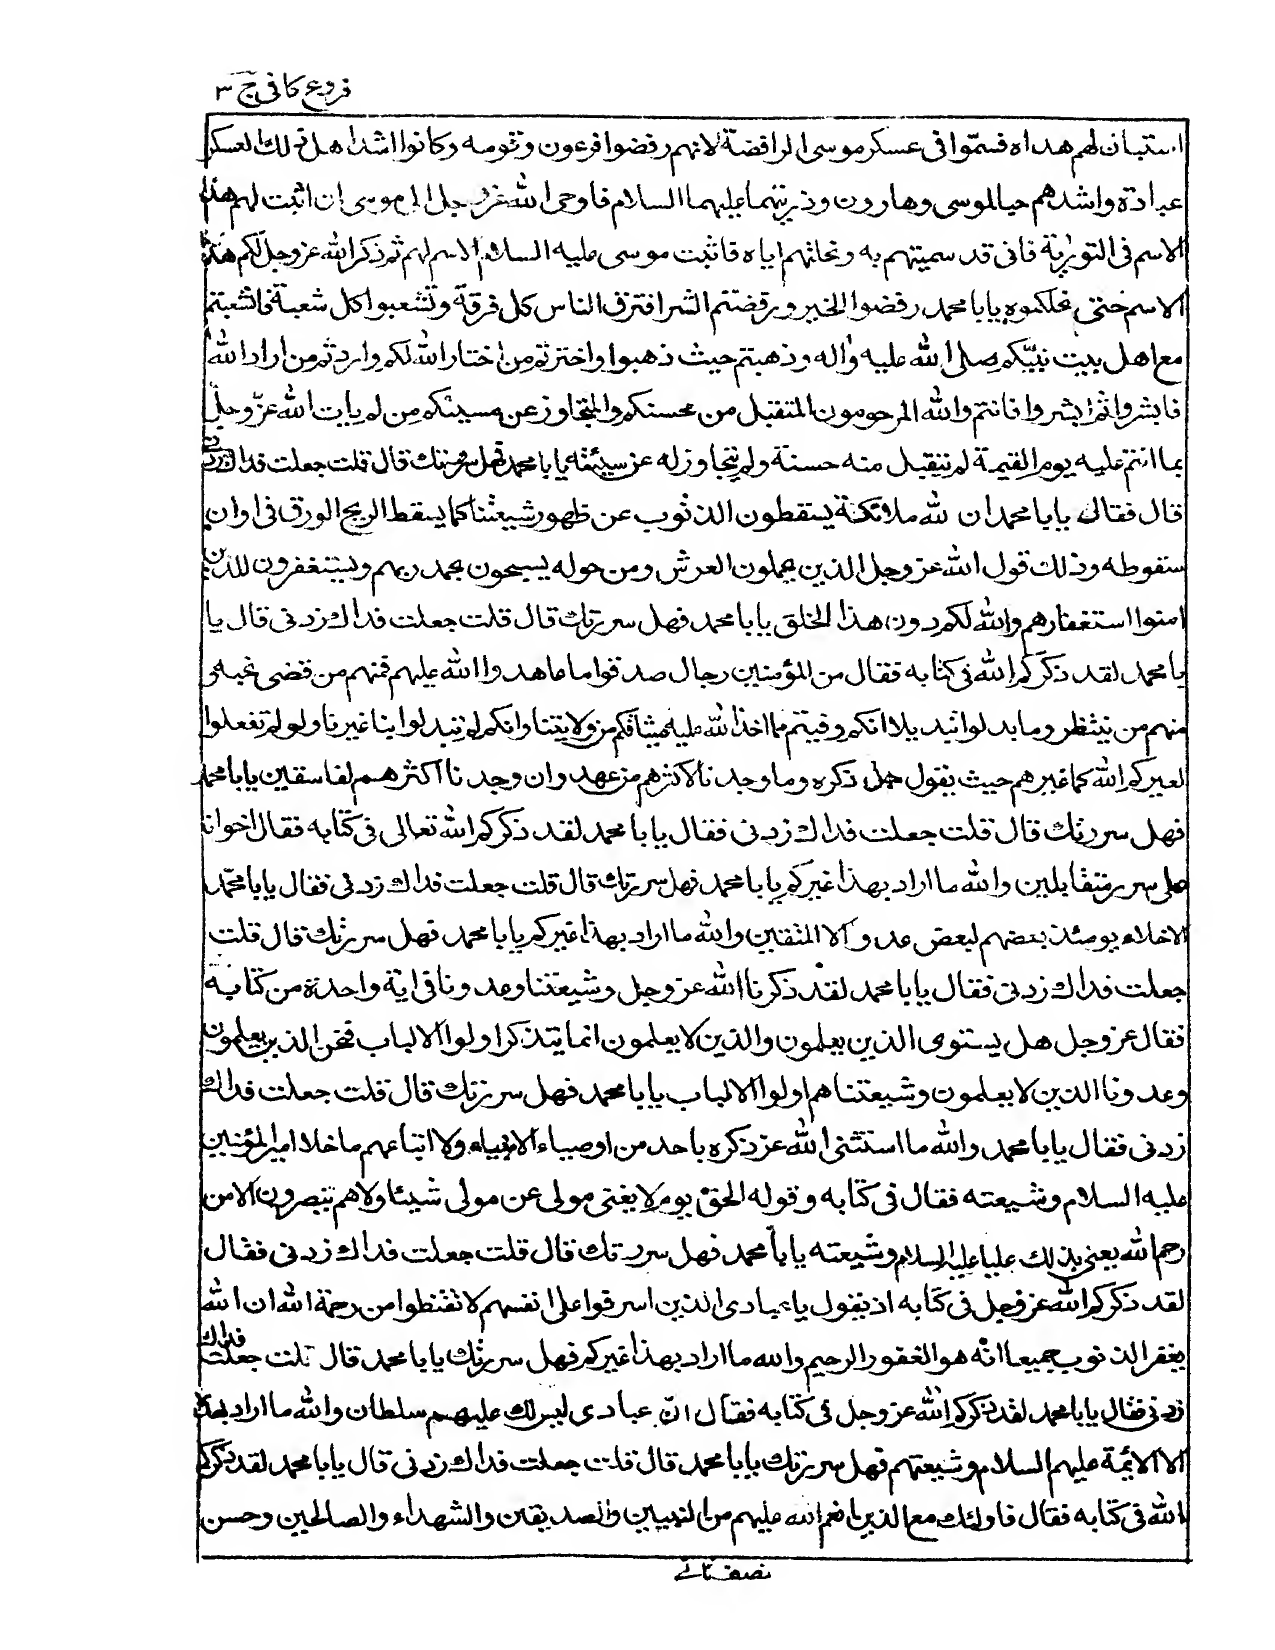 فروع كافى ج ٣
استبان لهم هداه فسمّوا فى عسكر موسى الرافضة لانهم رفضوا فرعون وقومه وكانوا اشد اهل ذلك العسكر
عبادة واشدهم حبا لموسى وهارون وذريتهما عليهما السلام فاوحى الله عز وجل الى موسى ان اثبت لهم هذا
الاسم فى التورٰية فانى قد سميتهم به ونحلتهم اياه فاثبت موسى عليه السلام الاسم لهم ثم ذكر الله عز وجل لكم هذا
الاسم حتى نحلكموه يابا محمد رفضوا الخير ورفضتم الشر افترق الناس كل فرقة وتشعبوا كل شعبة فانشعبتم
مع اهل بيت نبيّكم صلى الله عليه واله وذهبتم حيث ذهبوا واخترتم من اختار الله لكم واردتم من اراد الله
فابشروا ثم ابشروا فانتم والله المرحومون المتقبل من محسنكم والمتجاوز عن مسيئكم من لم يات الله عزّ وجلّ
بما انتم عليه يوم القيمة لم يتقبل منه حسنة ولم يتجاوز له عن سيئة يابا محمد فهل سررتك قال قلت جعلت فداك زدنى
قال فقال يابا محمد ان لله ملائكة يسقطون الذنوب عن ظهور شيعتنا كما يسقط الريح الورق فى اوان
سقوطه وذلك قول الله عز وجل الذين يحملون العرش ومن حوله يسبحون بحمد ربهم ويستغفرون للذين
امنوا استغفارهم والله لكم دون هذا الخلق يابا محمد فهل سررتك قال قلت جعلت فداك زدنى قال يا
يا محمد لقد ذكركم الله فى كتابه فقال من المؤمنين رجال صدقوا ما عاهدوا الله عليهم فمنهم من قضى نحبه و
منهم من ينتظر وما بدلوا تبديلا انكم وفيتم مما اخذ الله عليه ميثاقكم من ولايتنا وانكم لم تبدلوا بنا غيرنا ولو لم تفعلوا
لعيركم الله كما عيرهم حيث يقول جل ذكره وما وجدنا لاكثرهم من عهد وان وجدنا اكثرهم لفاسقين يابا محمد
فهل سررتك قال قلت جعلت فداك زدنى فقال يابا محمد لقد ذكركم الله تعالى فى كتابه فقال اخوانا
على سرر متقابلين والله ما اراد بهذا غيركم يابا محمد فهل سررتك قال قلت جعلت فداك زدنى فقال يابا محمّد
الاخلاء يومئذ بعضهم لبعض عدو الا المتقين والله ما اراد بهذا غيركم يابا محمد فهل سررتك قال قلت
جعلت فداك زدنى فقال يابا محمد لقد ذكرنا الله عز وجل وشيعتنا وعدونا فى اية واحدة من كتابه
فقال عز وجل هل يستوى الذين يعلمون والذين لا يعلمون انما يتذكر اولوا الالباب فنحن الذين يعلمون
وعدونا الذين لا يعلمون وشيعتنا هم اولوا الالباب يابا محمد فهل سررتك قال قلت جعلت فداك
زدنى فقال يابا محمد والله ما استثنى الله عز ذكره باحد من اوصياء الانبياء ولا اتباعهم ما خلا امير المؤمنين
عليه السلام وشيعته فقال فى كتابه وقوله الحق يوم لا يغنى مولى عن مولى شيئا ولا هم ينصرون الا من
رحم الله يعنى بذلك عليا عليه السلام وشيعته يابا محمد فهل سررتك قال قلت جعلت فداك زدنى فقال
لقد ذكركم الله عز وجل فى كتابه اذ يقول يا عبادى الذين اسرفوا على انفسهم لا تقنطوا من رحمة الله ان الله
يغفر الذنوب جميعا انّه هو الغفور الرحيم والله ما اراد بهذا غيركم فهل سررتك يابا محمد قال قلت جعلت فداك
زدنى فقال يابا محمد لقد ذكركم الله عز وجل فى كتابه فقال انّ عبادى ليس لك عليهم سلطان والله ما اراد بهذا
الا الائمة عليهم السلام وشيعتهم فهل سررتك يابا محمد قال قلت جعلت فداك زدنى قال يابا محمد لقد ذكركم
الله فى كتابه فقال فاولئك مع الذين انعم الله عليهم من النبيين والصديقين والشهداء والصالحين وحسن
نصف ثانى